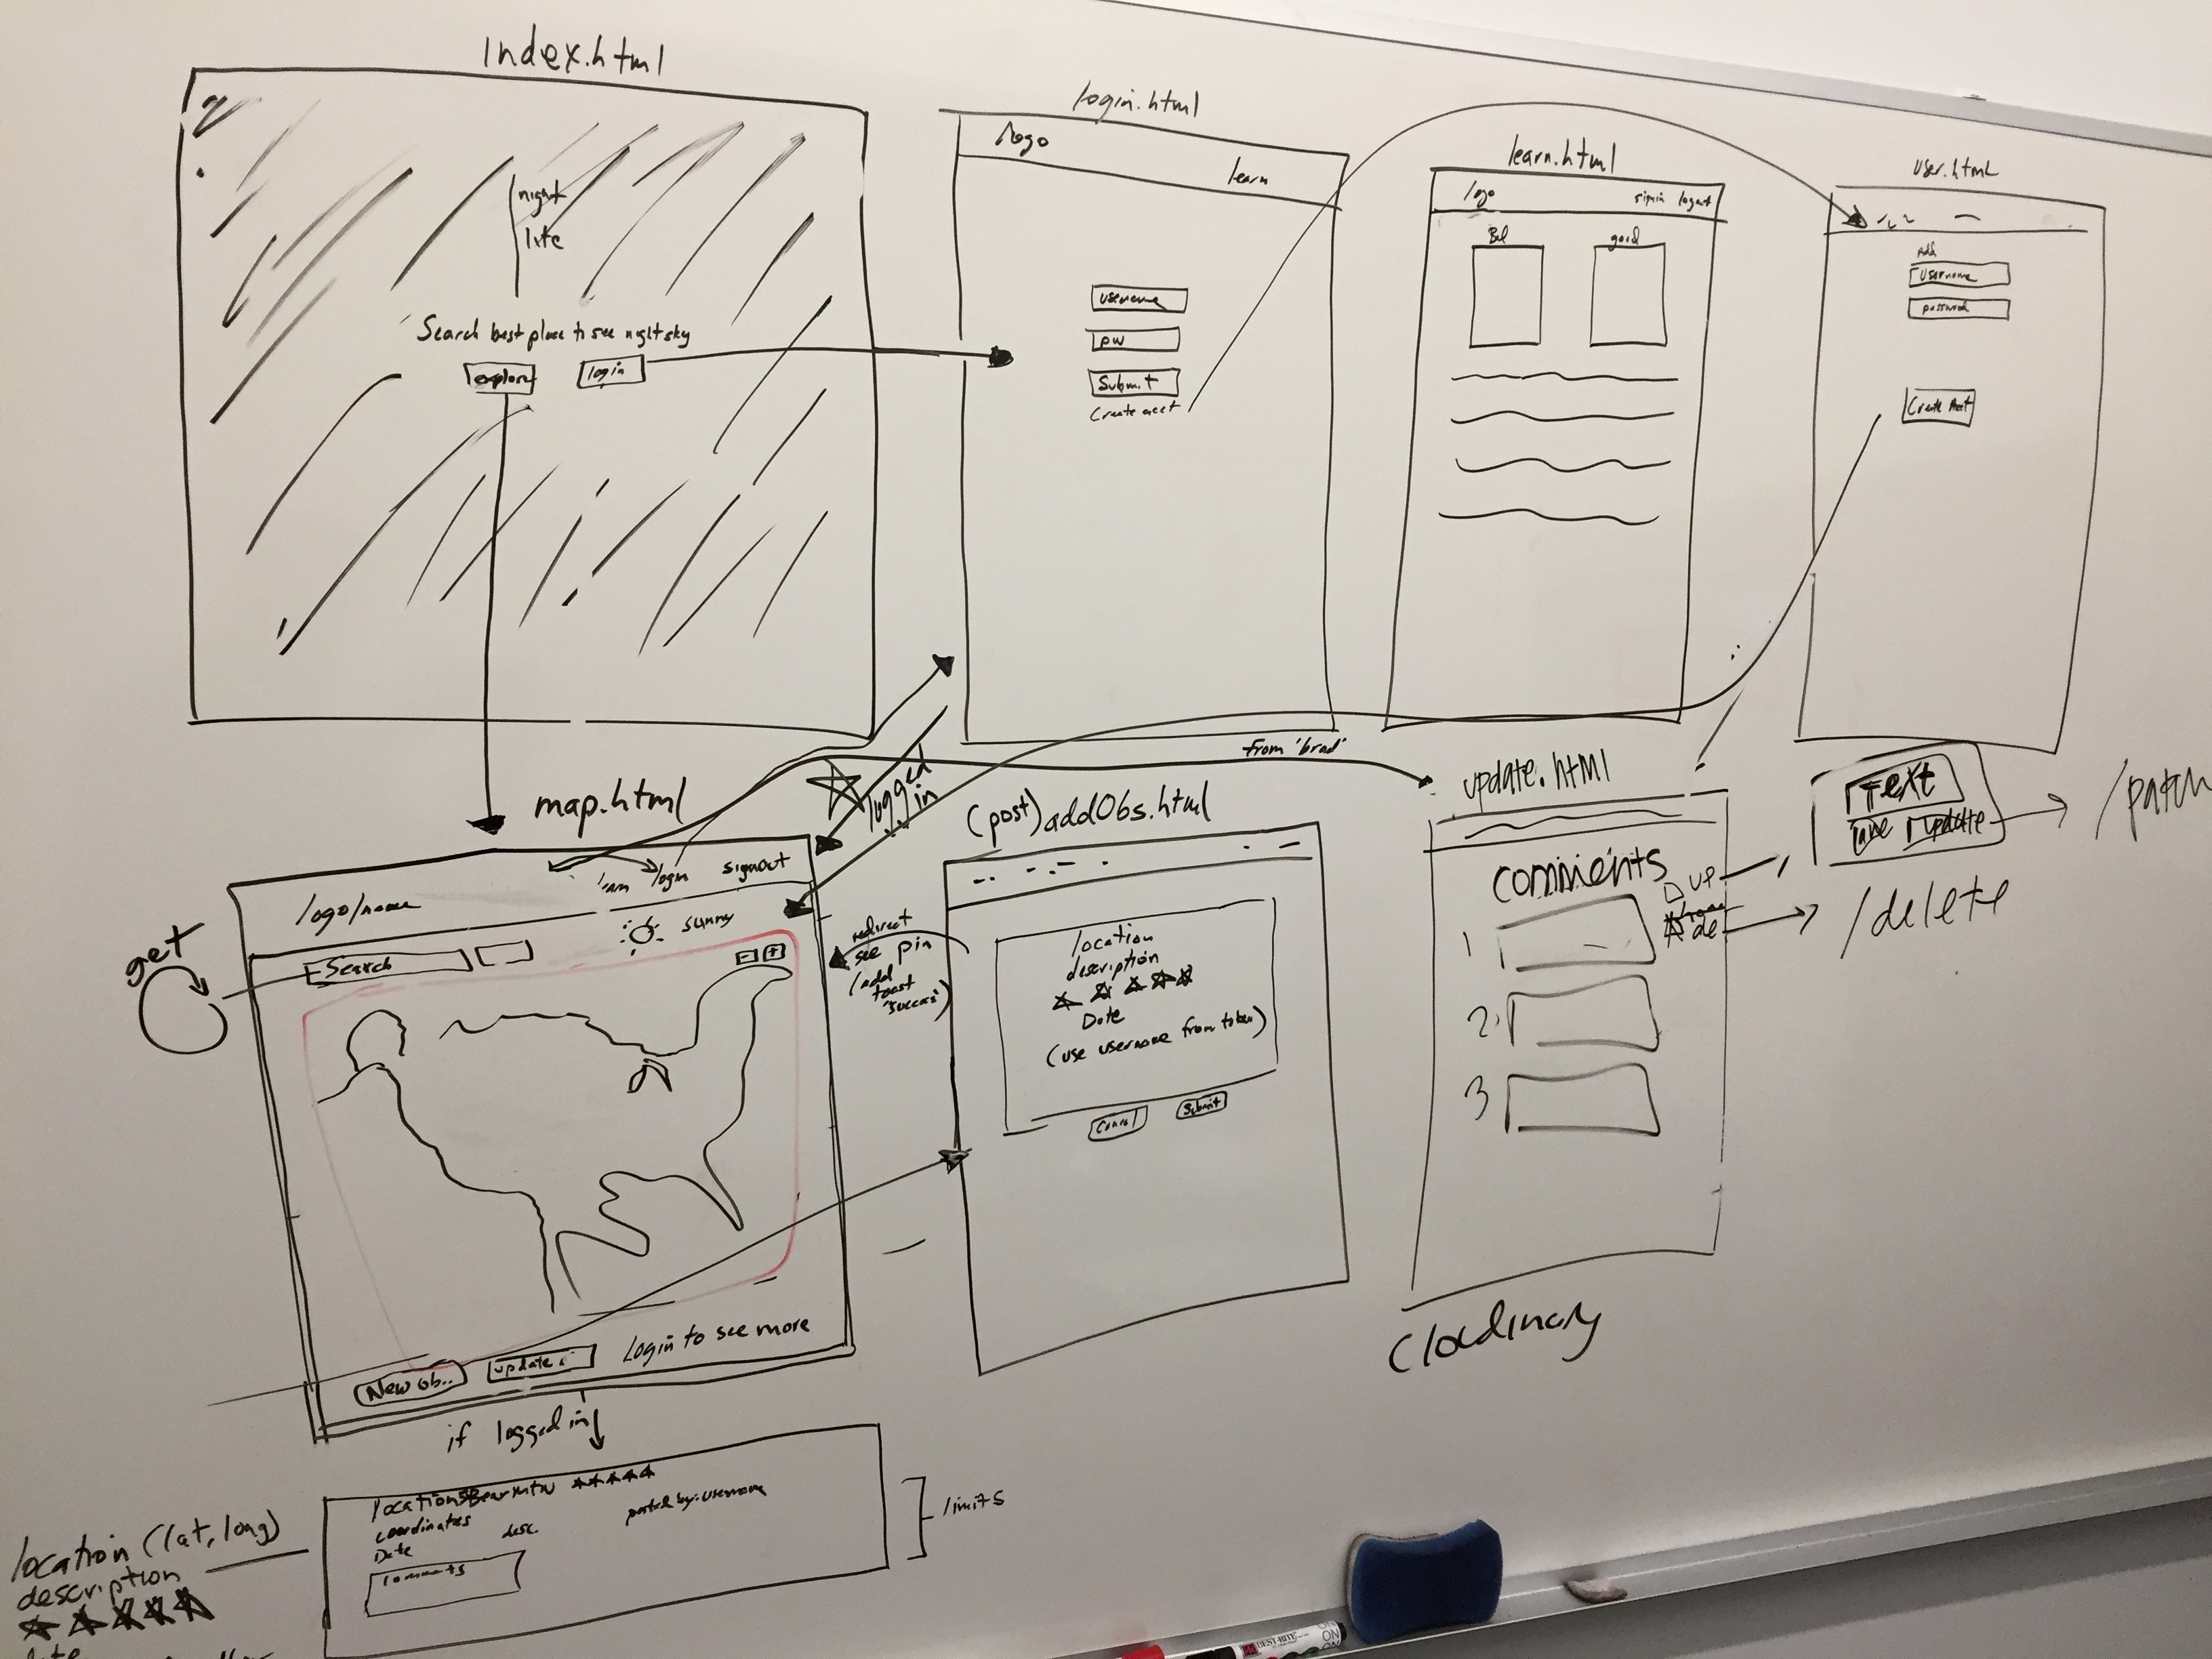 Index.html
night
lite
Search best place to see night sky
explore
login
login.html
logo
learn
username
pw
Submit
Create acct
learn.html
logo
signin logout
Bad
good
user.html
Add
Username
password
Create Acct
map.html
logo/name
learn
login
signout
sunny
get
Search
- +
New ob..
update
Login to see more
logged
in
from 'brad'
(post) addObs.html
redirect
see pin
(add
toast
"success)
location
description
Date
(use username from token)
Cancel
Submit
update.html
comments
1
2.
3
up
de
Text
update
/patch
/delete
Cloudinary
if logged in
location
Bear Mtn
coordinates
Date
desc.
posted by: username
comments
limits
location (lat, long)
description